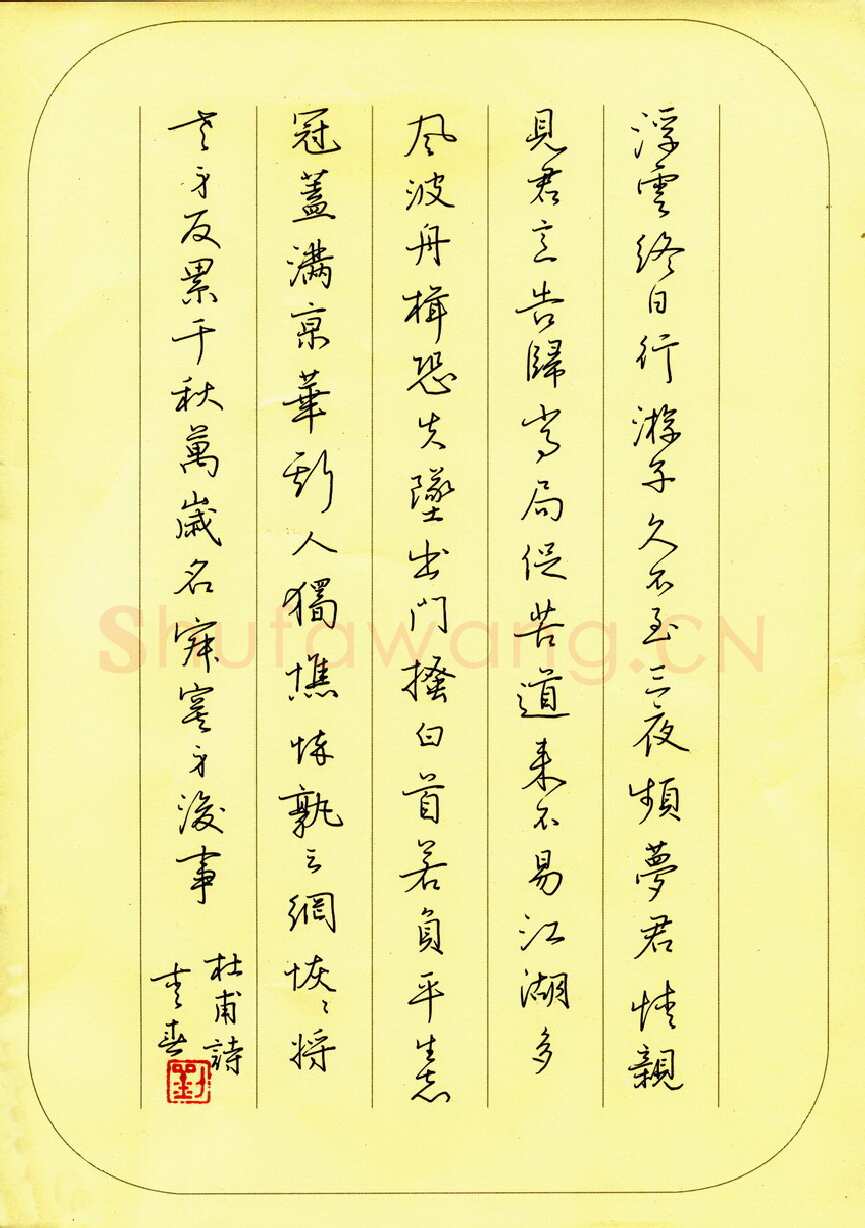 浮雲終日行游子久不至三夜頻夢君情親
見君意告歸常局促苦道來不易江湖多
風波舟楫恐失墜出門搔白首若負平生志
冠蓋滿京華斯人獨憔悴孰云網恢〻將
老身反累千秋萬歲名寂寞身後事
杜甫詩
劉
Shufawang.CN